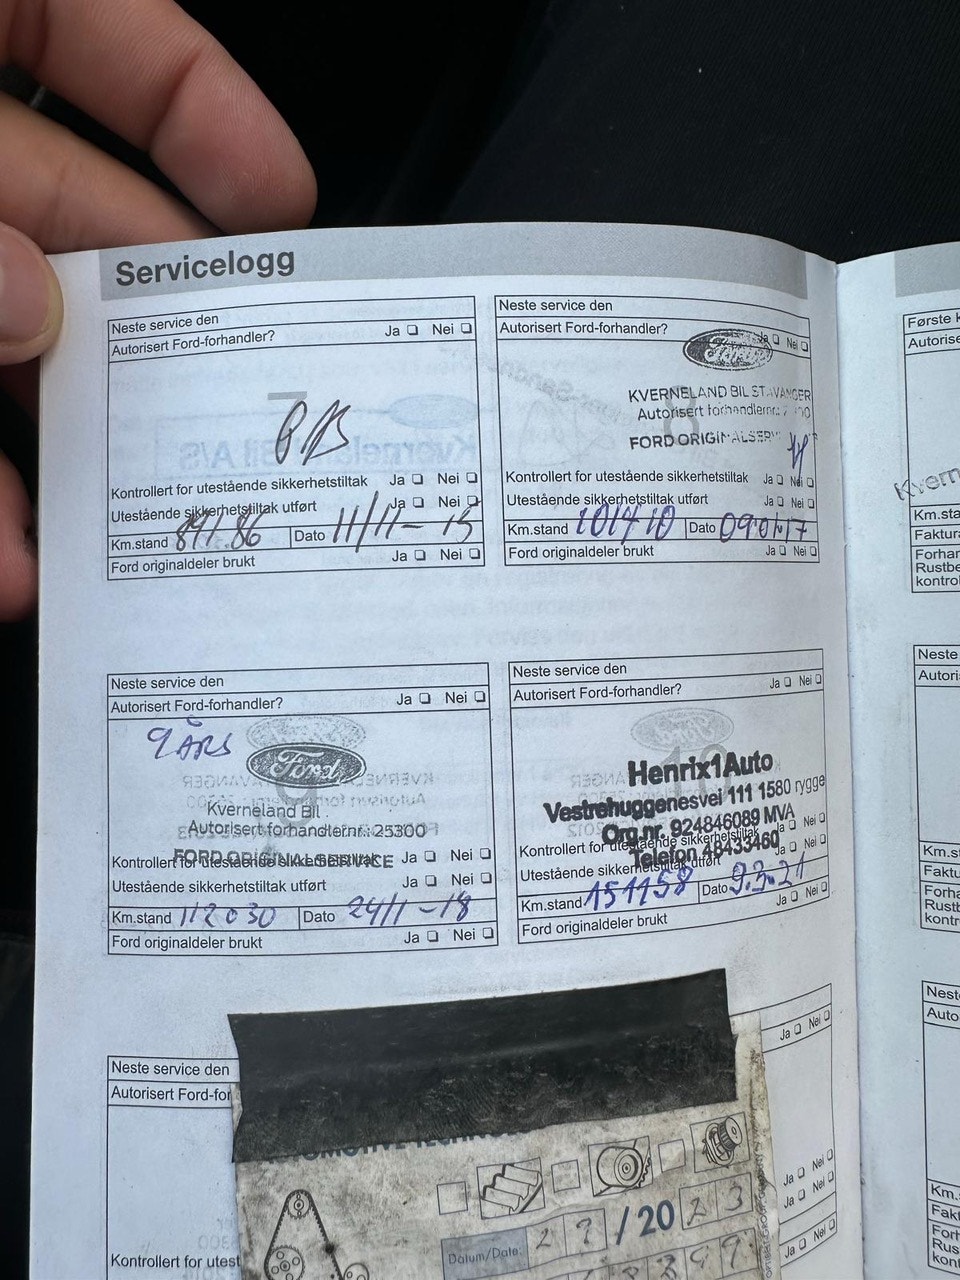 Servicelogg
Neste service den
Autorisert Ford-forhandler? Ja Nei
7
Kontrollert for utestående sikkerhetstiltak Ja Nei
Utestående sikkerhetstiltak utført Ja Nei
Km.stand Dato 11/11-15
Ford originaldeler brukt Ja Nei
Neste service den
Autorisert Ford-forhandler? Ja Nei
Ford
8
KVERNELAND BIL STAVANGER
Autorisert forhandlernr.:
FORD ORIGINAL SERV
Kontrollert for utestående sikkerhetstiltak Ja Nei
Utestående sikkerhetstiltak utført Ja Nei
Km.stand 101410 Dato 09.01.17
Ford originaldeler brukt Ja Nei
Neste service den
Autorisert Ford-forhandler? Ja Nei
9 ÅRS
Ford
9
Kverneland Bil
Autorisert forhandlernr.: 25300
FORD ORIGINAL SERVICE
Kontrollert for utestående sikkerhetstiltak Ja Nei
Utestående sikkerhetstiltak utført Ja Nei
Km.stand 112030 Dato 24/1-18
Ford originaldeler brukt Ja Nei
Neste service den
Autorisert Ford-forhandler? Ja Nei
10
Henrix1Auto
Vestrehuggenesvei 111 1580 rygge
Org.nr. 924846089 MVA
Telefon 48433460
Kontrollert for utestående sikkerhetstiltak Ja Nei
Utestående sikkerhetstiltak utført Ja Nei
Km.stand 151158 Dato 9.3.21
Ford originaldeler brukt Ja Nei
Neste service den
Autorisert Ford-for
Ja Nei
Ja Nei
Ja Nei
Ja Nei
Kontrollert for utest
Datum/Date: /20 23
Første k
Autorise
Km.sta
Faktura
Forhan
Rustbe
kontrol
Neste
Autori
Km.st
Faktu
Forha
Rustb
kontr
Nest
Auto
Km.
Fak
For
Rus
kon